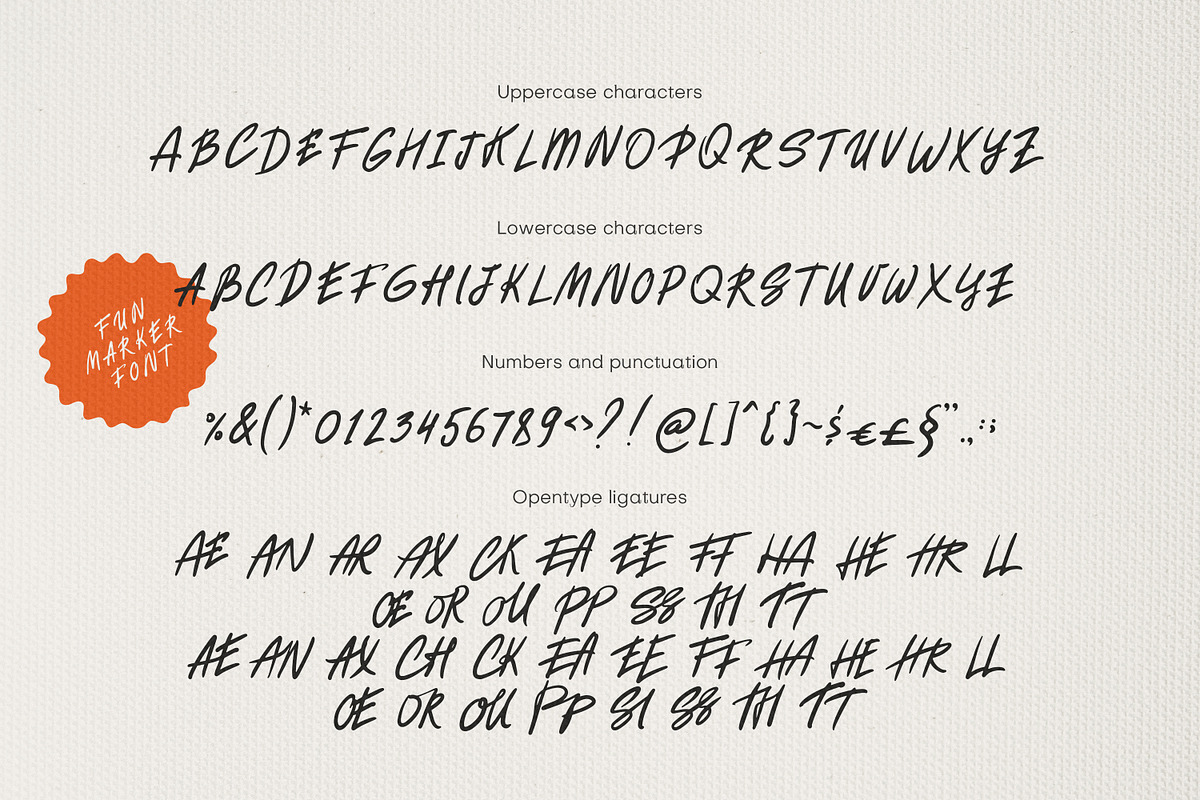 Uppercase characters
ABCDEFGHIJKLMNOPQRSTUVWXYZ
Lowercase characters
ABCDEFGHIJKLMNOPQRSTUVWXYZ
FUN
MARKER
FONT
Numbers and punctuation
%&()*0123456789<>?!@[]^{}~$€££§”.,:;
Opentype ligatures
AE AN AR AX CK EA EE FF HA HE HR LL
OE OR OU PP SS TH TT
AE AN AX CH CK EA EE FF HA HE HR LL
OE OR OU PP SI SS TH TT